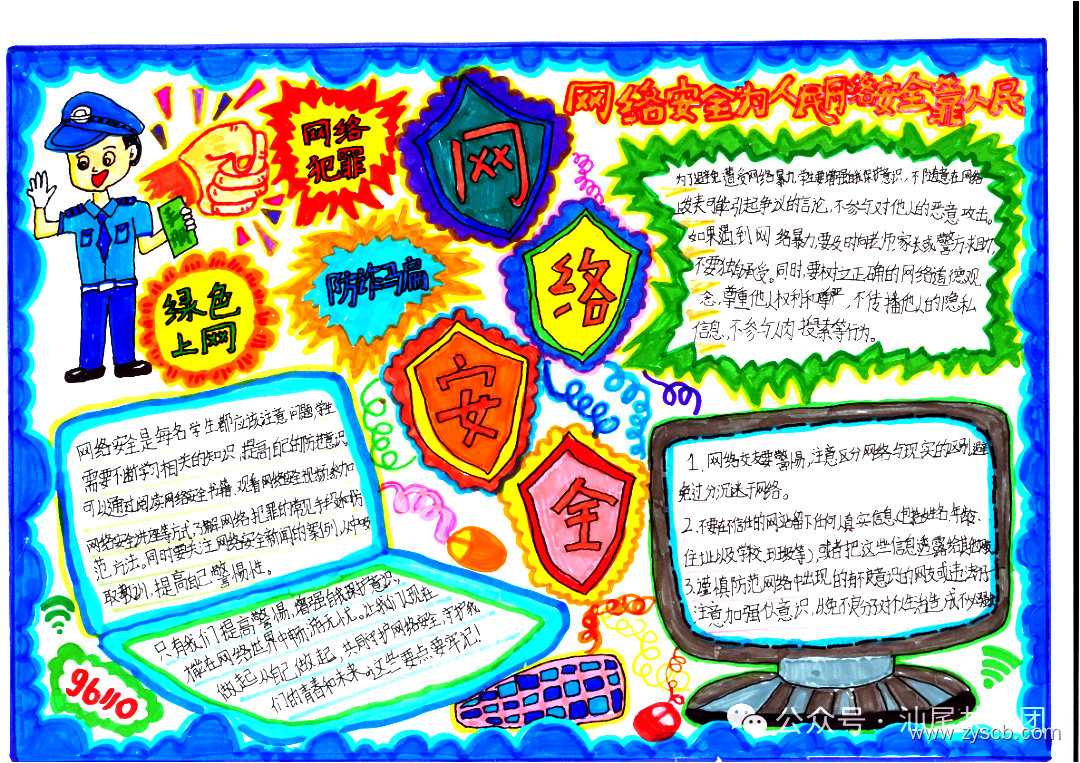 网络安全为人民网络安全靠人民
网络
犯罪
网
络
安
全
防诈骗
绿色
上网
为了避免遭受网络暴力,学生要有自我保护意识,不随意在网络
发表可能引起争议的言论,不参与对他人的恶意攻击。
如果遇到网络暴力,要及时向老师家长或警方求助,
不要独自承受。同时,要树立正确的网络道德观
念,尊重他人权利和尊严,不传播他人的隐私
信息,不参与人肉搜索等行为。
网络安全是每名学生都应该注意问题,学生
需要不断学习相关的知识,提高自己的防范意识
可以通过阅读网络安全书籍、观看网络安全视频,参加
网络安全讲座等方式,了解网络犯罪的常见手段和防
范方法。同时要关注网络安全新闻的案例,从中吸
取教训,提高自己警惕性。
只有我们提高警惕,增强自我保护意识,
才能在网络世界中畅游无忧。让我们从现在
做起,从自己做起,共同守护网络安全,守护我
们的青春和未来。这些要点要牢记!
1. 网络交友要警惕,注意区分网络与现实的区别,避
免过分沉迷于网络。
2. 不要在信任的网站留下任何人真实信息,包括姓名、年龄、
住址以及学校、班级等,或者把这些信息透露给其他网友
3. 谨慎防范网络中出现的有不良意识的网友或违法行
注意加强
96110
公众号·汕尾
www.zyscb.com